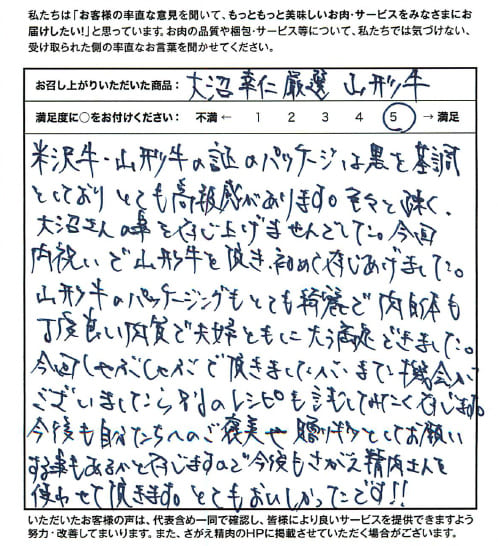 私たちは「お客様の率直な意見を聞いて、もっともっと美味しいお肉・サービスをみなさまにお
届けしたい!」と思っています。お肉の品質や梱包・サービス等について、私たちでは気づけない、
受け取られた側の率直なお言葉を聞かせてください。
お召し上がりいただいた商品: 大沼幸仁厳選 山形牛
満足度に○をお付けください: 不満 ← 1 2 3 4 5 → 満足
米沢牛・山形牛の証のパッケージは黒を基調
としており とても高級感があります。 と疎く、
大沼さんの事を存じ上げませんでした。今回
内祝いで山形牛を頂き、初めて存じあげました。
山形牛のパッケージングもとても綺麗で肉自体も
丁度良い肉質で夫婦ともに大満足できました。
今回しゃぶしゃぶで頂きましたが、また機会が
ございましたら別のレシピも試してみたく存じます。
今後も自分たちへのご褒美や贈りギフトとしてお願い
する事もあるかと存じますので今後もさがえ精肉さんを
使わせて頂きます。とてもおいしかったです!!
いただいたお客様の声は、代表含め一同で確認し、皆様により良いサービスを提供できますよう
努力・改善してまいります。また、さがえ精肉のHPに掲載させていただく場合がございます。